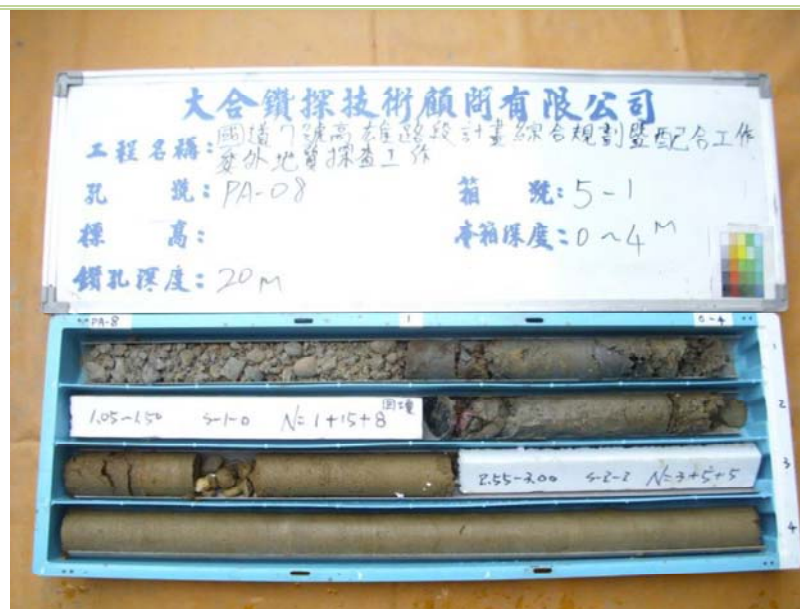 大合鑽探技術顧問有限公司
工程名稱：國道7號高雄路段計畫綜合規劃暨配合工作
委外地質探查工作
孔 號：PA-08 箱 號：5-1
標 高： 本箱深度：0~4M
鑽孔深度：20M
PA-8 1 0-4
1
1.05-1.50 S-1-0 N=1+15+8 回填
2
2.55-3.00 S-2-2 N=3+5+5
3
4